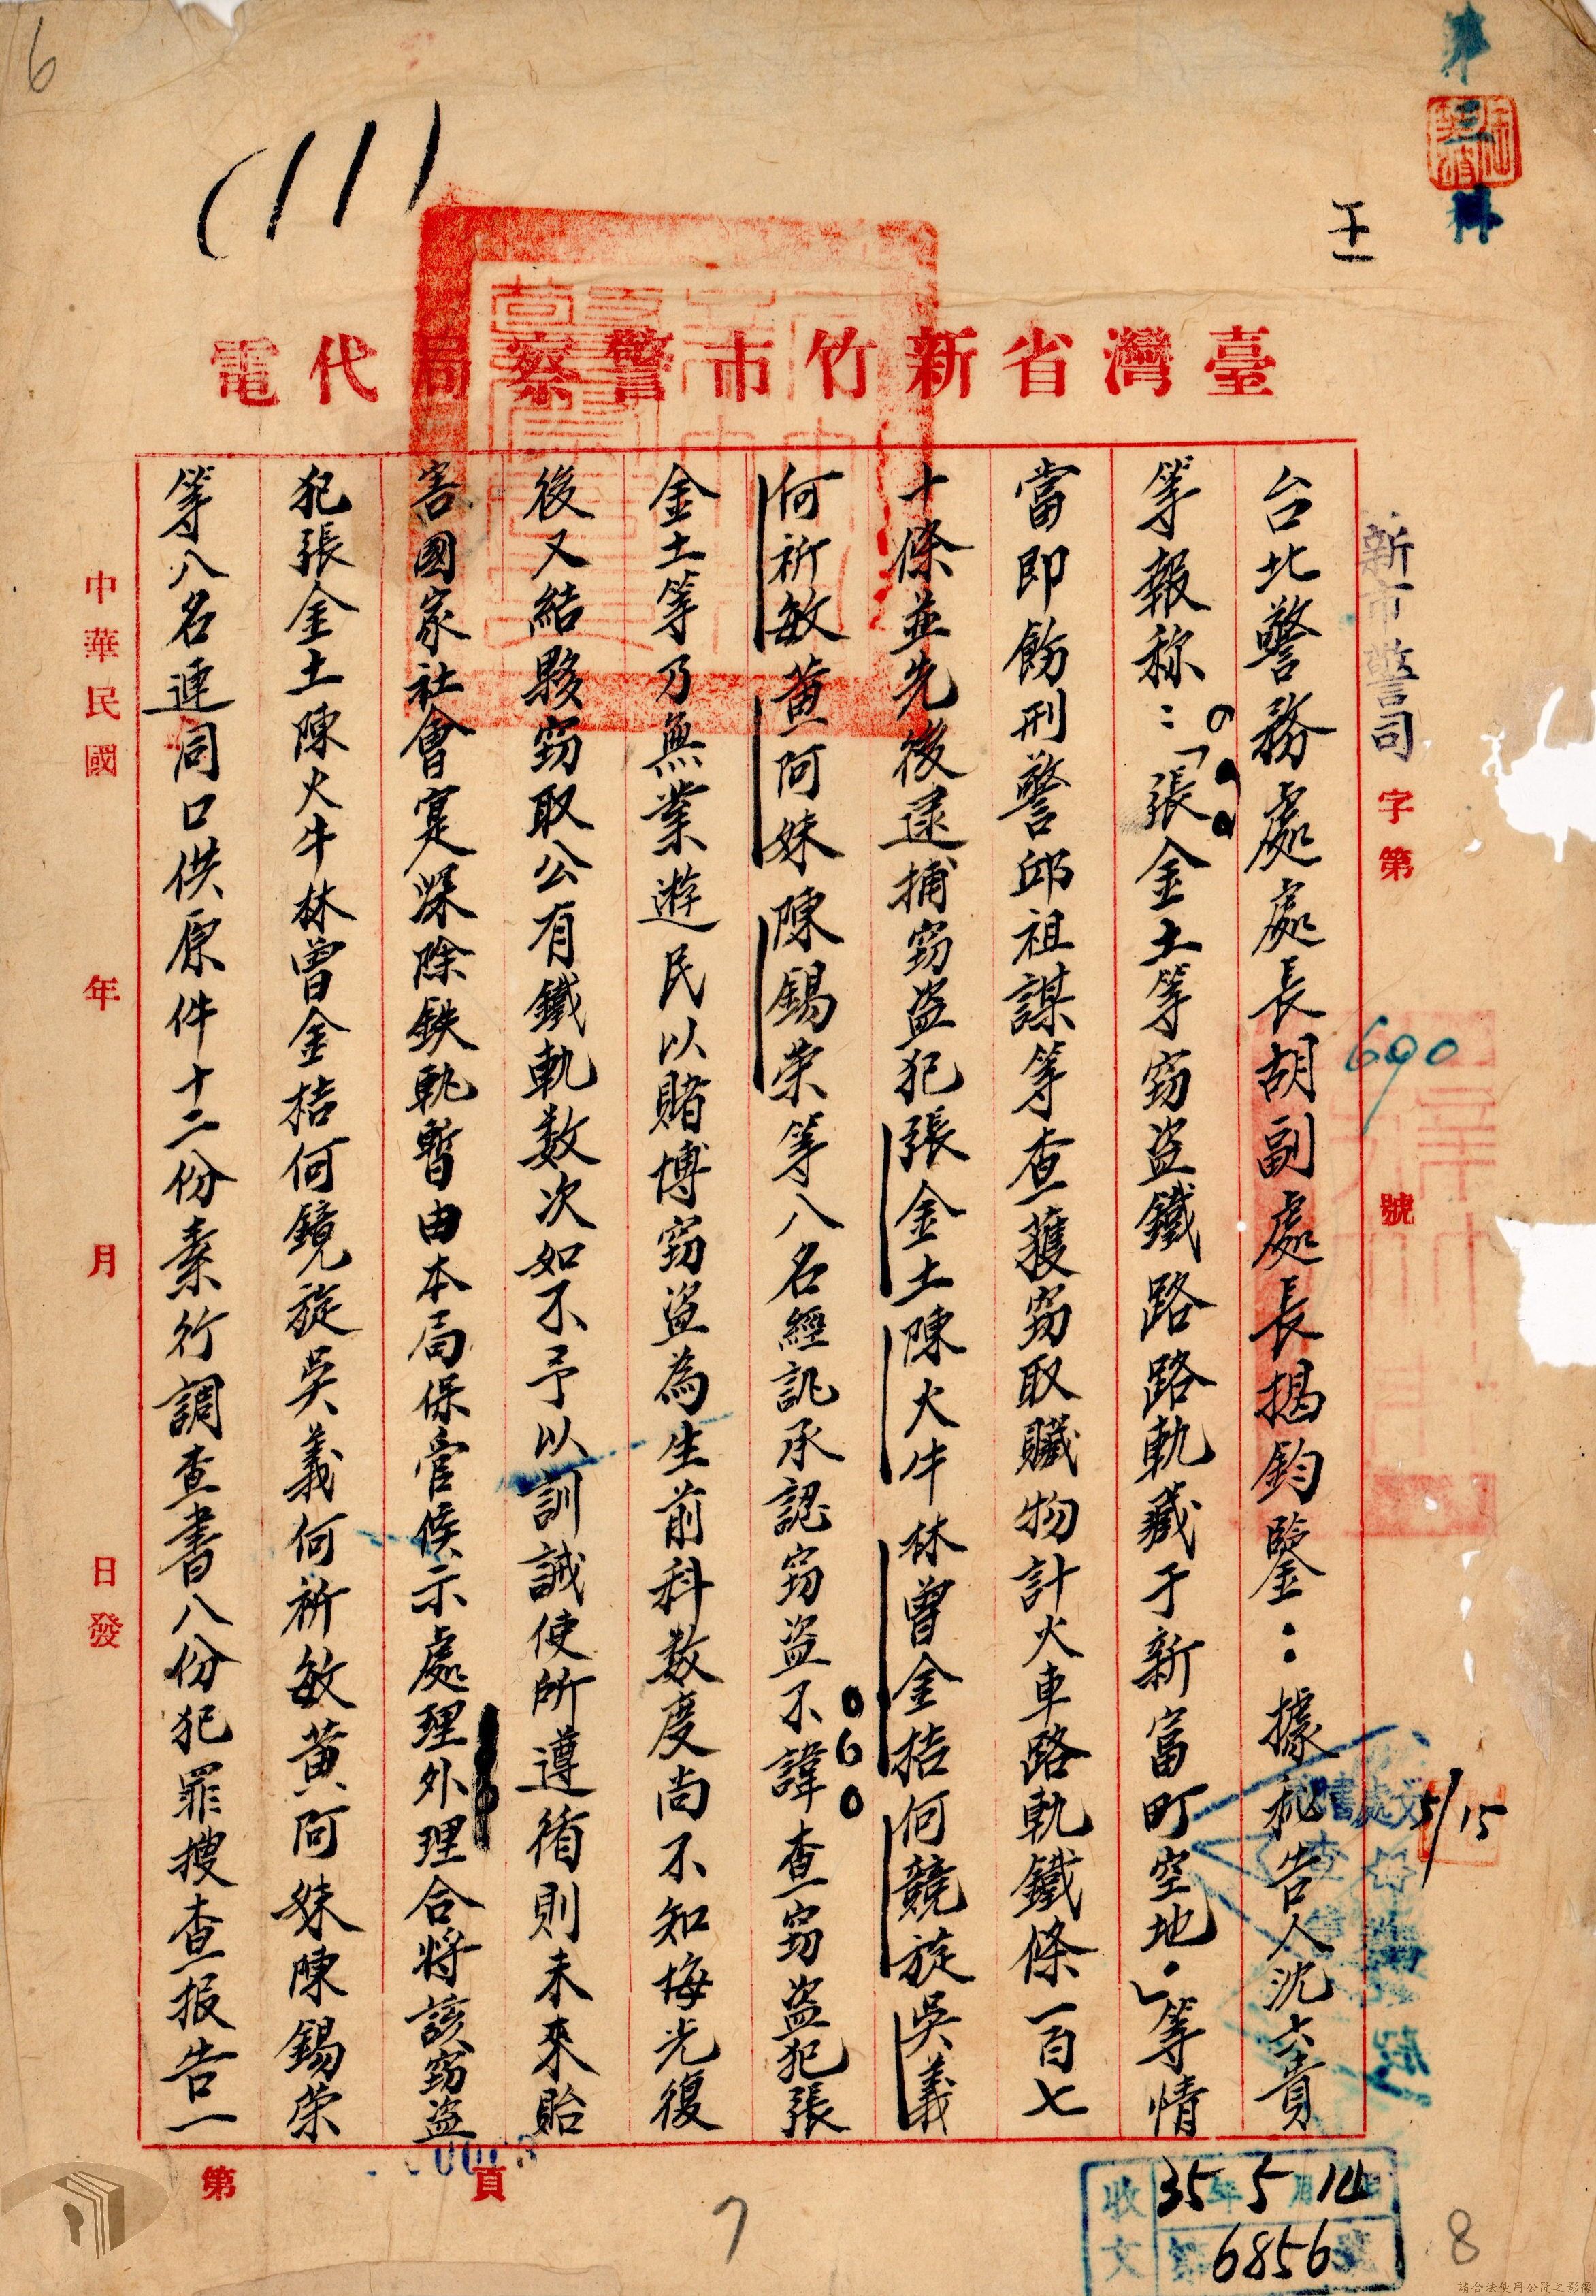 6
第三科
臺灣省新竹市警察局代電
新市警司字第690號
5/15
台北警務處處長胡副處長揭鈞鑒：據秘告人沈六貴
等報称：「張金土等窃盗鐵路路軌藏于新富町空地。」等情
當即飭刑警邱祖謀等查獲窃取贜物計火車路軌鐵條一百七
十條並先後逮捕窃盗犯張金土陳火牛林曾金桔何競旋吳義
何祈敏黄阿妹陳錫荣等八名經訊承認窃盗不諱查窃盗犯張
金土等乃無業遊民以賭博窃盗為生前科数度尚不知悔光復
後又結夥窃取公有鐵軌数次如不予以訓誡使所遵循則未來貽
害國家社會寔深除鉄軌暫由本局保管候示處理外理合将該窃盗
犯張金土陳火牛林曾金桔何鏡旋吳義何祈敏黄阿妹陳錫荣
等八名連同口供原件十二份素行調查書八份犯罪搜查报告一
中華民國 年 月 日發
第 頁
7
收文 35年5月14日
6856號
8
請合法使用公開之影像